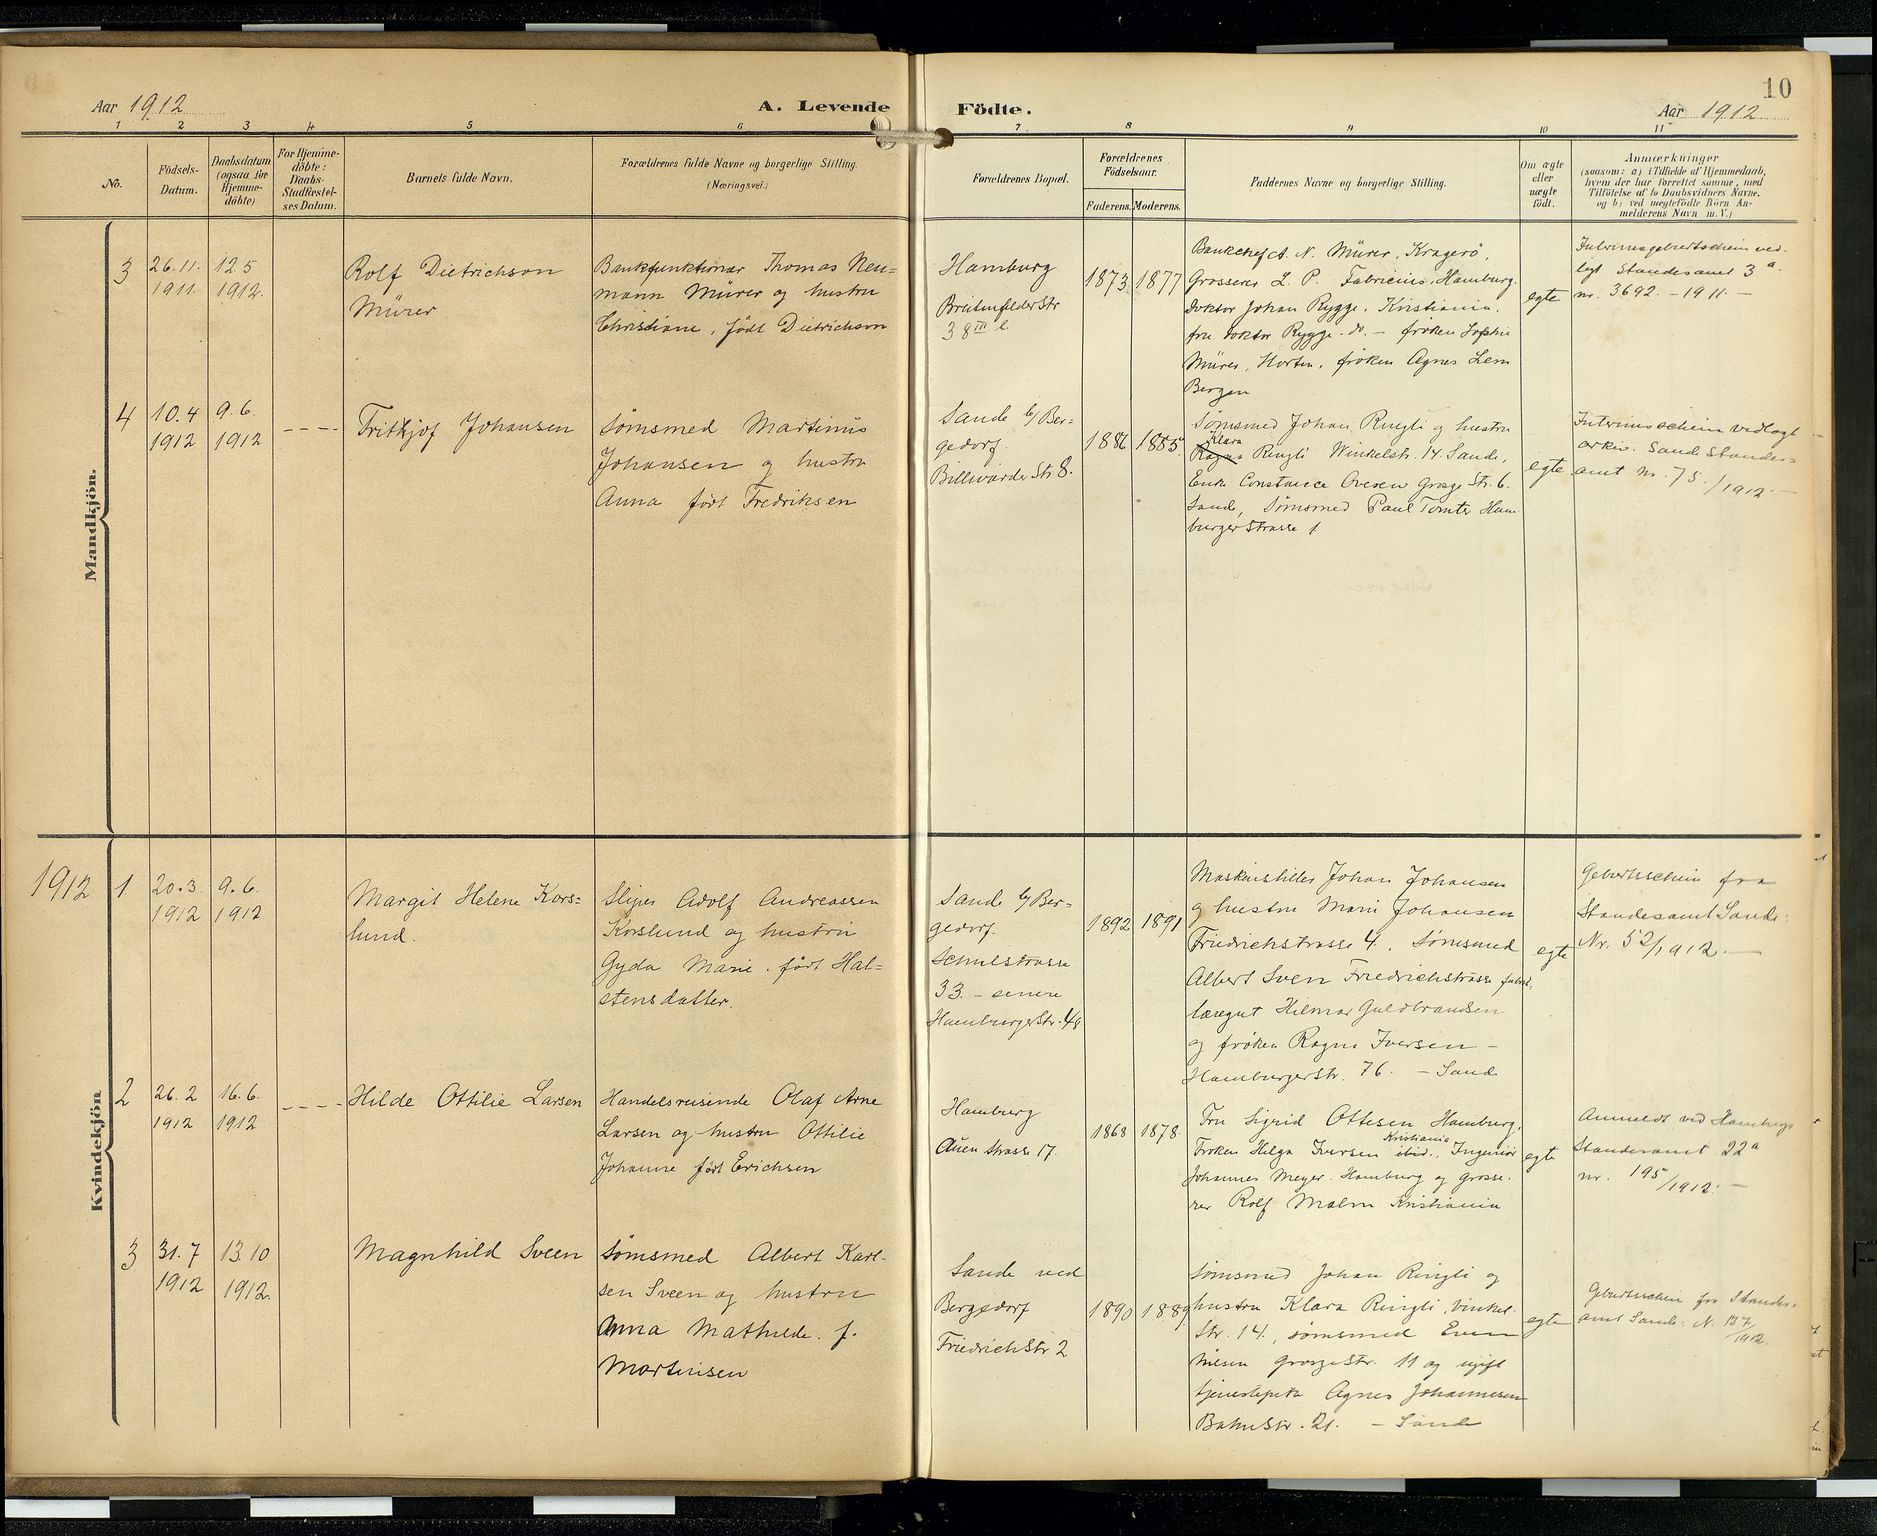 Aar 1912
A. Levende
Födte.
10
Aar 1912
1
2
3
4
5
6
7
8
9
10
11
No.
Födsels-
Datum.
Daabsdatum
(ogsaa for
Hjemme-
döbte)
For Hjemme-
döbte:
Daabs-
Stadfæstel-
ses Datum.
Barnets fulde Navn.
Forældrenes fulde Navne og borgerlige Stilling.
(Næringsvei.)
Forældrenes Bopæl.
Forældrenes
Födselsaar.
Faderens.
Moderens.
Faddernes Navne og borgerlige Stilling.
Om ægte
eller
uægte
födt.
Anmærkninger
(saasom: a) i Tilfælde af Hjemmedaab,
hvem der har forrettet samme, med
Tilföielse af to Daabsvidners Navne.
og b) ved uegtefödte Börn An-
melderens Navn m. V.)
Mandkjön.
3
26.11.
1911.
12.5
1912.
Rolf Dietrichson
Mürer
Bankfunktionær Thomas Neu-
mann Mürer og hustru
Christiane, født Dietrichson
Hamburg
Breitenfelder Str
38 III l
1873
1877
Bankchef A. N. Mürer, Kragerö,
Grosserer L. P. Fabricius, Hamburg.
Doktor Johan Rygge, Kristiania,
fru doktor Rygge do. - frøken Sophie
Mürer, Horten, frøken Agnes Lem
Bergen
egte
Interimsgeburtschein ved-
lagt Standesamt 3a.
nr. 3692. - 1911. -
4
10.4
1912
9.6.
1912
----
Fritkjof Johansen
Sømsmed Martinus
Johansen og hustru
Anna født Fredriksen
Sande b/ Ber-
gedorf.
Billwärder Str 8.
1886
1885.
Sømsmed Johan Ringli og hustru
Klara
Ragna Ringli Winkelstr. 14. Sande,
Enke Constance Ovesen Grosze Str. 6.
Sande, Sømsmed Paul Tomter Ham
burger Strasse 1
egte
Interimsschein vedlagt
arkiv. Sande Standes-
amt nr. 75./1912. -
Kvindekjön
1912
1
20.3.
1912
9.6.
1912
Margit Helene Kors-
lund.
Sliper Adolf Andreassen
Korslund og hustru
Gyda Marie. født Hal-
stensdatter.
Sande b/ Ber-
gedorf.
Schulstrasse
33. - senere
Hamburger Str. 48
1892
1891
Maskinstiller Johan Johansen
og hustru Marie Johansen
Friedrichstrasse 4, Sømsmed
Albert Sveen Friedrichstrasse
Hilmar Guldbrandsen
og frøken Ragna Iversen -
Hamburgerstr. 76. - Sande
egte
Geburtsschein fra
Standesamt Sande:
Nr. 52/1912. -
2
26.2
1912
16.6.
1912
----
Hilde Ottilie Larsen
Handelsreisende Olaf Arne
Larsen og hustru Ottilie
Johanne født Erichsen
Hamburg
Auen strasse 17.
1868
1878
Fru Sigrid Ottesen Hamburg,
Kristiania
Frøken Helga Iversen ibid., Ingeniör
Johannes Meyer. Hamburg og grosse-
rer Rolf Malm Kristiania
egte
Anmeldt ved Hamburgs
Standesamt 22a
nr. 195/1912. -
3
31.7
1912
13.10
1912.
Magnhild Sveen
Sømsmed Albert Karl-
sen Sveen og hustru
Anna Mathilde. f.
Martinsen
Sande ved
Bergedorf
Friedrich Str 2
1890
1889.
Sømsmed Johan Ringli og
hustru Klara Ringli, Vinkel-
Str. 14., sømsmed Even
Nilsen Grosze Str. 11 og ugift
tjenestepike Agnes Johannesen
Bahnstr. 21. - Sande
egte
Geburtsschein fra Standes-
amt Sande. N. 137/
1912.